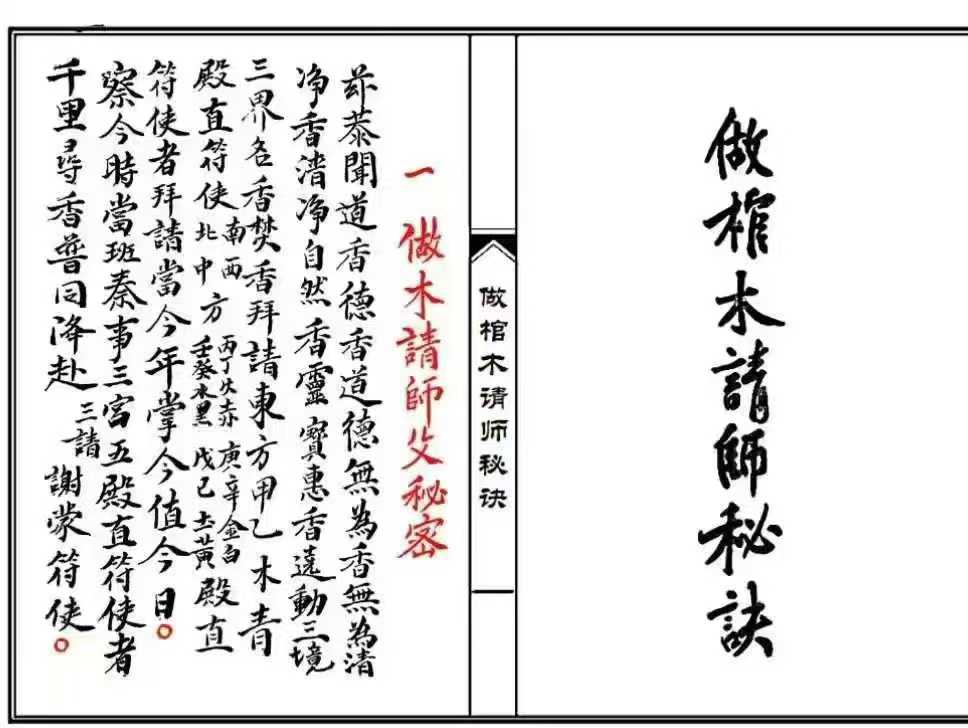 做棺木請師秘訣
做棺木请师秘诀
一 做木請師父秘密
茶聞道香德香道德無為香無為清
净香清净自然香靈寶惠香遶動三境
三界名香焚香拜請東方甲乙木青
殿直符使南西北中方丙丁火赤庚辛金白壬癸水黑戊己土黄殿直
符使者拜請當今年掌今值今日。
察今時當班奏事三宮五殿直符使者
千里尋香普同降赴三請謝蒙符使。